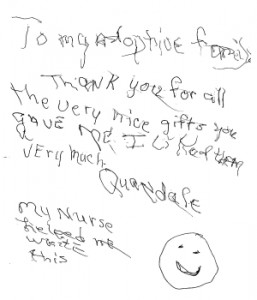 To my adoptive family
Thank you for all
the very nice gifts you
gave me. I liked them
very much.
Quandale
My Nurse
helped me
write
this